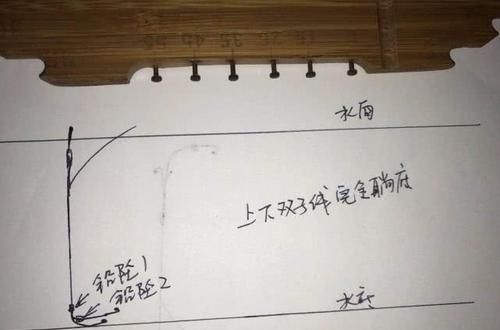 水面
上下双子线完全躺底
铅坠1
铅坠2
水底